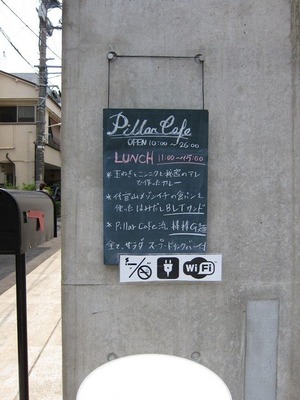 Pillar Cafe
OPEN 10:00〜26:00
LUNCH 11:00〜15:00
*玉ねぎとニンニクと秘密のタレ
で作ったカレー
*代官山メゾンイチの食パンを
使ったはみだしBLTサンド
*Pillar Cafe流 棒棒G麺
全て、サラダ スープ・ドリンクバー付
WiFi